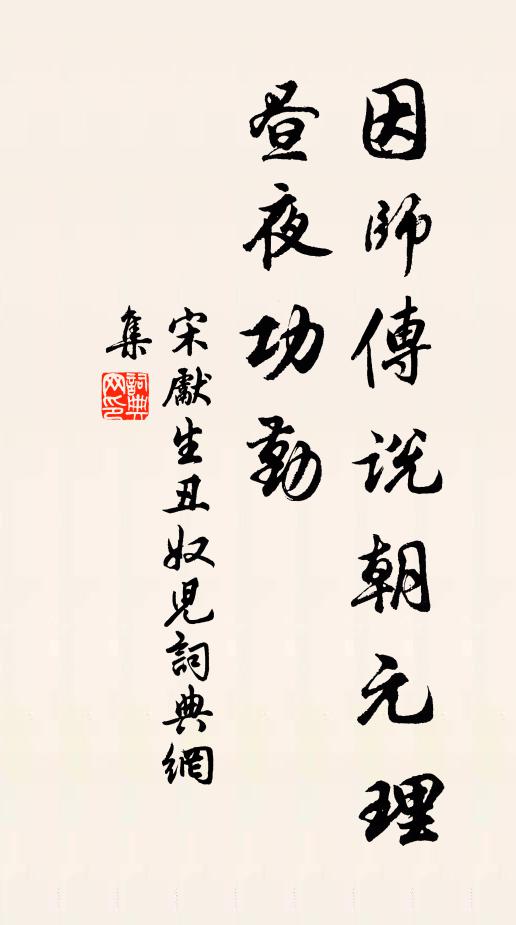 因師傅説朝元理
晝夜功勤
宋獻生丑奴兒詞典網
集
詞典
网印